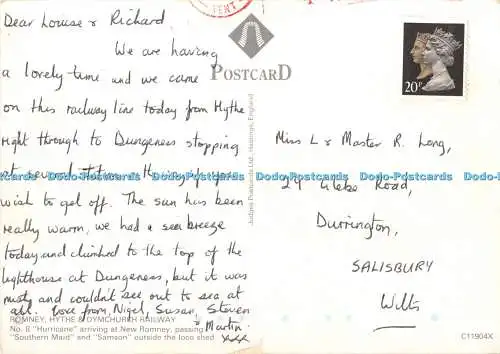 KENT
Dear Louise & Richard
We are having
a lovely time and we came
on this railway line today from Hythe
right through to Dungeness stopping
at several stations the way if you
wish to get off. The sun has been
really warm, we had a sea breeze
today and climbed to the top of the
lighthouse at Dungeness, but it was
misty and couldn't see out to sea at
all. Love from, Nigel, Susan, Steven
& Martin. xxx
ROMNEY, HYTHE & DYMCHURCH RAILWAY
No. 8 "Hurricane" arriving at New Romney, passing
"Southern Maid" and "Samson" outside the loco shed
POSTCARD
Judges Postcards Ltd., Hastings, England
20P
Miss L & Master R. Long,
29 Glebe Road,
Durrington,
SALISBURY
Wilts
C11904X
Dodo-Postcards Dodo-Postcards Dodo-Postcards Dodo-Postcards Dodo-Postcards